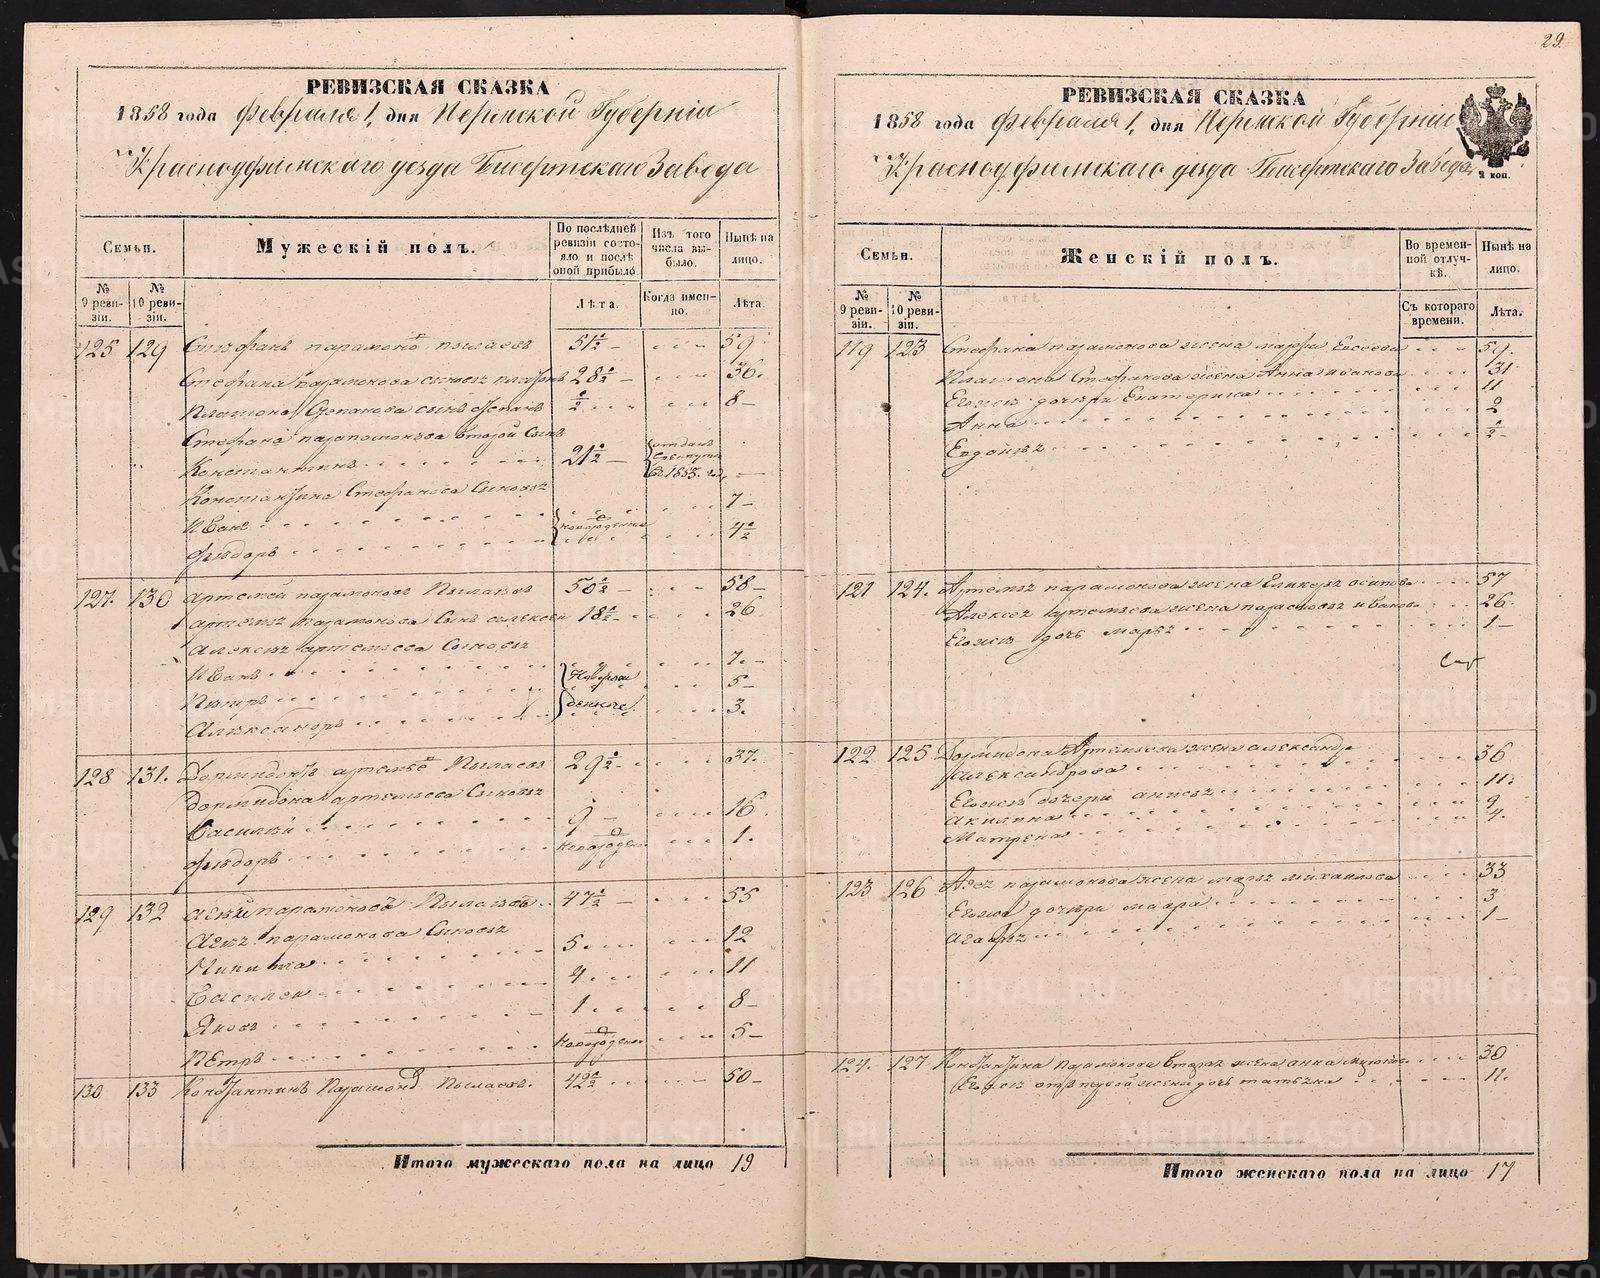 29.
РЕВИЗСКАЯ СКАЗКА
1858 года Февраля 1, дня Пермской Губерніи
Красноуфимскаго уезда Бисертскаго Завода
Семьи.
Мужескій полъ.
По послѣдней ревизіи состояло и послѣ оной прибыло.
Изъ того числа выбыло.
Нынѣ на лицо.
№ 9 ревизіи.
№ 10 ревизіи.
Лѣта.
Когда именно.
Лѣта.
125 129 Стефанъ парамоновъ 51½ 59
Стефана парамонова сынъ 28½ 36.
Платона сынъ ½ 8
Стефана второй сынъ
Константинъ 21½ отданъ въ 1855. году
Константина Стефанова сыновья
Иванъ 7
новорожденные
Федоръ 4½
127. 130 Артемей парамоновъ 50½ 58
артемья парамонова сынъ алексей 18½ 26
Алексея артемьева сыновья
Иванъ 7.
Новорожденные
Петръ 5
Александръ 3.
128 131. Дормидонтъ артемьевъ 29½ 37.
Дормидона артемьева сыновья
Василей 9 16
Федоръ новорожден. 1.
129 132 парамоновъ 47½ 55
парамонова сыновья
Никита 5 12
Василей 4 11
Яковъ 1 8
Петръ новорожден 5
130 133 Константинъ Парамоновъ 42½ 50
Итого мужескаго пола на лицо 19
РЕВИЗСКАЯ СКАЗКА
1858 года Февраля 1, дня Пермской Губерніи
Красноуфимскаго уезда Бисертскаго Завода
2 коп.
Семьи.
Женскій полъ.
Во временной отлучкѣ.
Нынѣ на лицо.
№ 9 ревизіи.
№ 10 ревизіи.
Съ котораго времени.
Лѣта.
119 123 Стефана парамонова жена марфа Евсеева 59.
Платона Стефанова жена Анна иванова 31
Егожъ дочери Екатерина 11
Анна 2
Евдокея ½
121 124. Артемья парамонова жена осипова 57
Алексея артемьева жена парасковья иванова 26.
Егожъ дочь марья 1
122 125 Дормидона Артемьева жена александра
Александрова 36
Егожъ дочери 11.
акилина 9
Матрена 4.
123 126 парамонова жена марья михайлова 33
Егожъ дочери мавра 3
агафья 1
124. 127 Константина Парамонова вторая жена анна 30
Егожъ отъ первой жены дочь татьяна 11.
Итого женскаго пола на лицо 17
METRIKI.GASO-URAL.RU